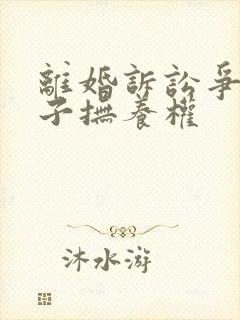 離婚訴訟爭
子撫養權
沐水游